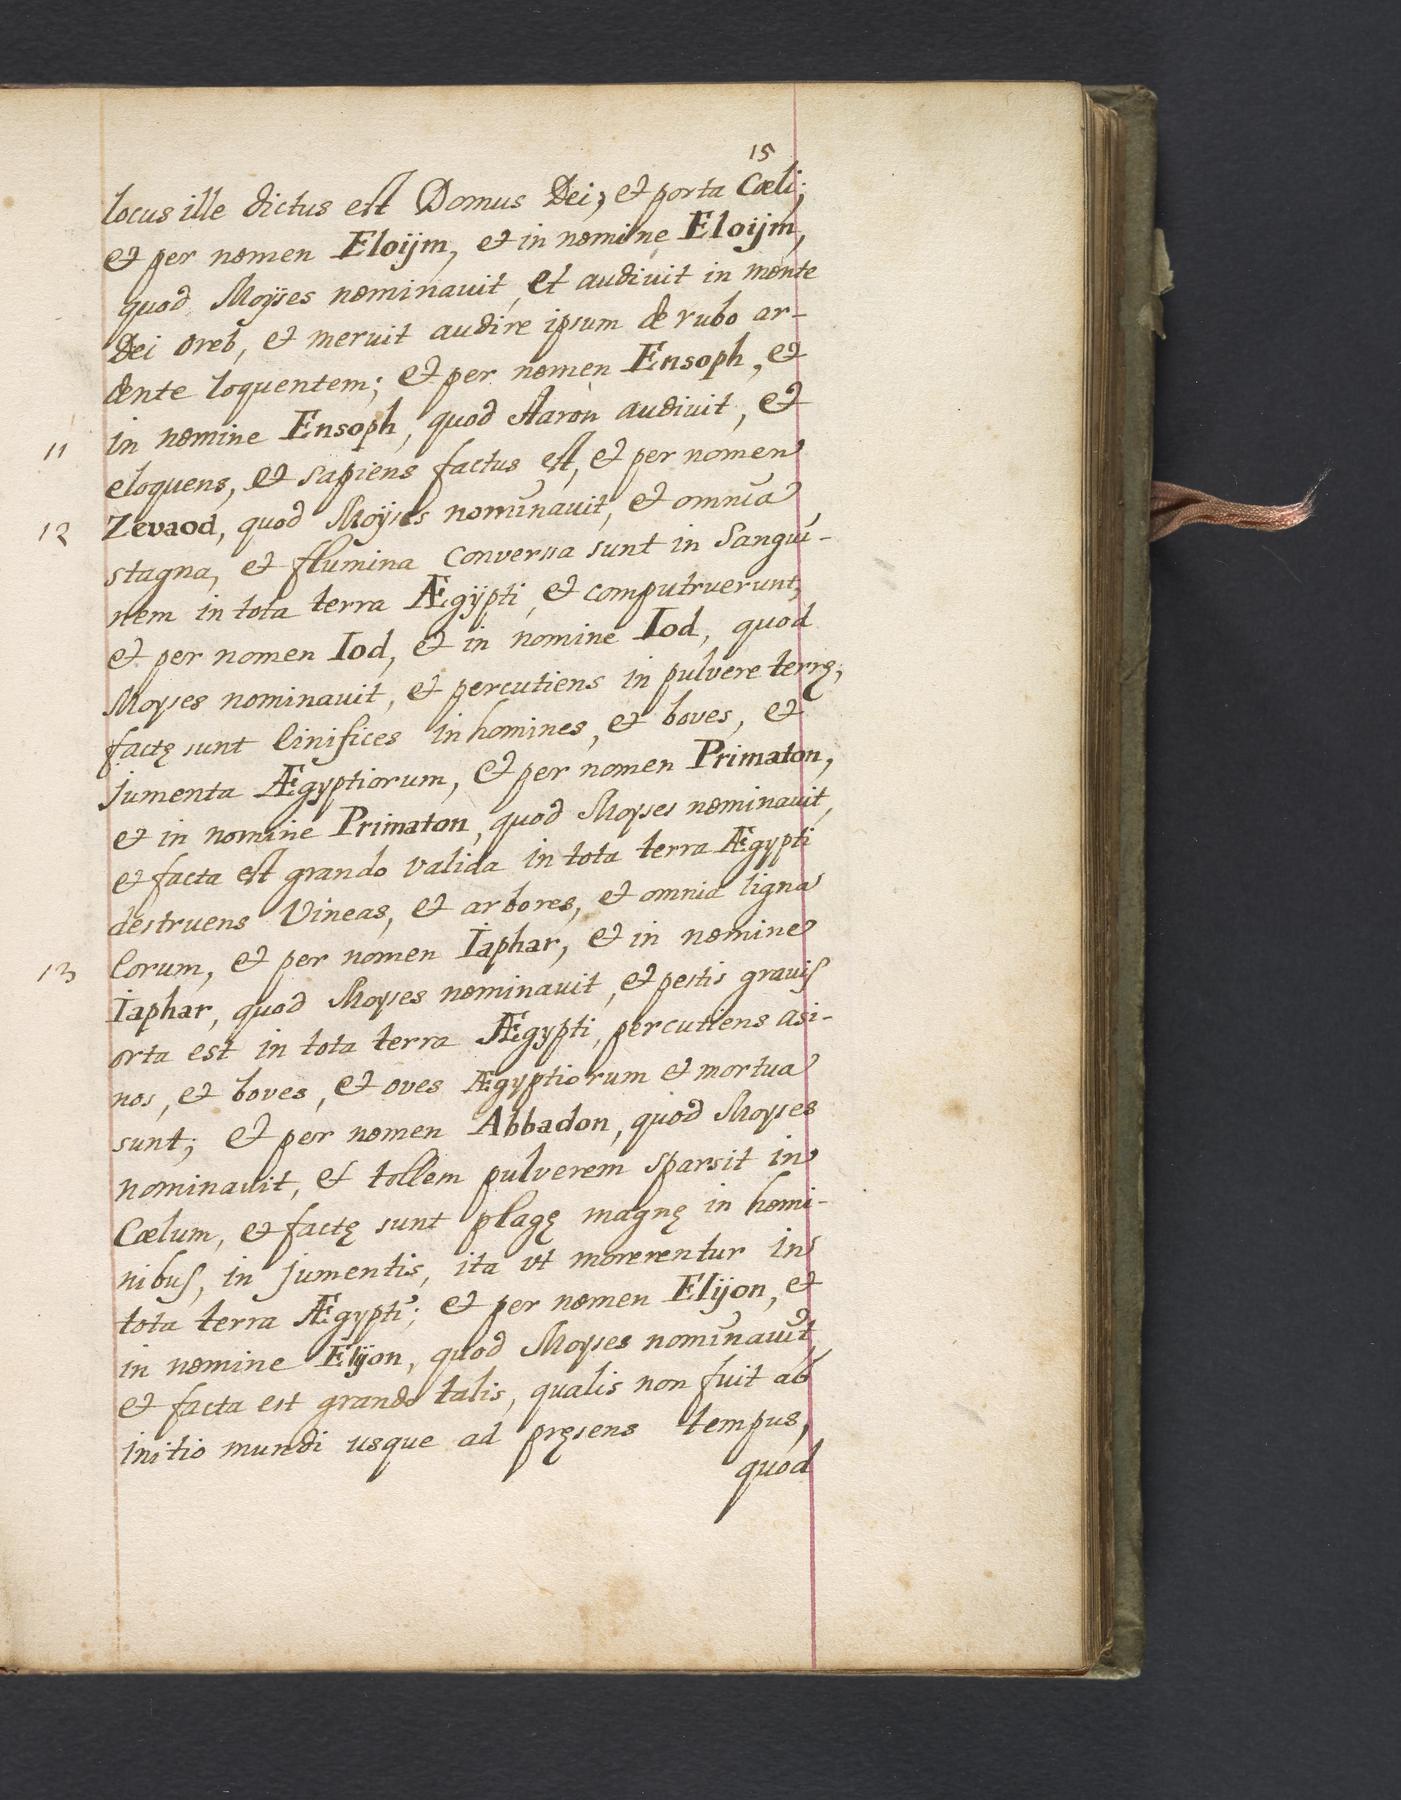 15
locus ille dictus est Domus Dei; et porta Cœli;
et per nomen Eloijm, et in nomine Eloijm,
quod Moyses nominauit, et audiuit in monte
Dei Oreb, et meruit audire ipsum de rubo ar-
dente loquentem; et per nomen Ensoph, et
11 in nomine Ensoph, quod Aaron audiuit, et
eloquens, et sapiens factus est, et per nomen
12 Zevaod, quod Moyses nominauit, et omnia
stagna, et flumina conversa sunt in Sangui-
nem in tota terra Ægÿpti, et computruerunt,
et per nomen Iod, et in nomine Iod, quod
Moyses nominauit, et percutiens in pulvere terrę,
factę sunt Cinifices in homines, et boves, et
jumenta Ægyptiorum, et per nomen Primaton,
et in nomine Primaton, quod Moyses nominauit,
et facta est grando valida in tota terra Ægypti
destruens Vineas, et arbores, et omnia ligna
13 Eorum, et per nomen Iaphar, et in nomine
Iaphar, quod Moyses nominauit, et pestis grauis
orta est in tota terra Ægypti, percutiens asi-
nos, et boves, et oves Ægyptiorum et mortua
sunt; et per nomen Abbadon, quod Moyses
nominauit, et tollem pulverem sparsit in
Cœlum, et factę sunt plagę magnę in homi-
nibus, in jumentis, ita vt morerentur in
tota terra Ægypti; et per nomen Elijon, et
in nomine Elijon, quod Moyses nominauit,
et facta est grando talis, qualis non fuit ab
initio mundi usque ad pręsens tempus,
quod